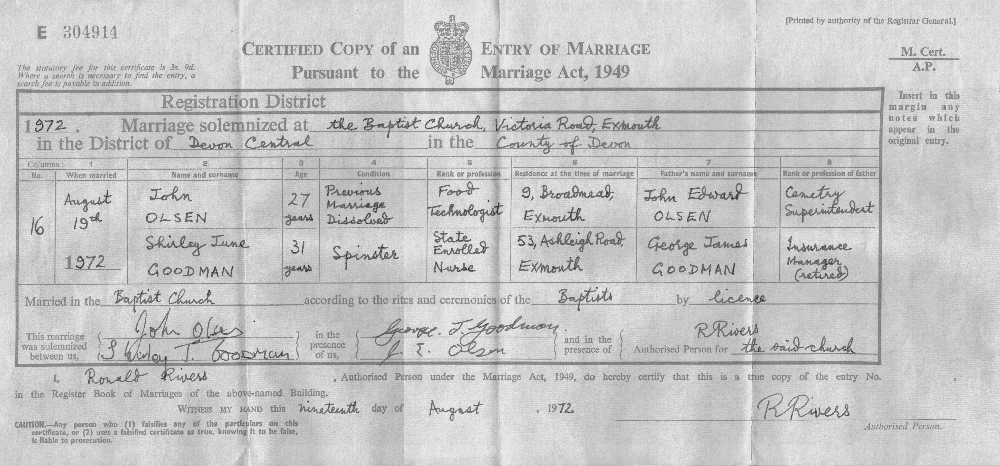 E 304914
[Printed by authority of the Registrar General.]
CERTIFIED COPY of an ENTRY OF MARRIAGE
Pursuant to the Marriage Act, 1949
M. Cert.
A.P.
The statutory fee for this certificate is 3s. 9d.
Where a search is necessary to find the entry, a
search fee is payable in addition.
Insert in this
margin any
notes which
appear in the
original entry.
Registration District
1972. Marriage solemnized at the Baptist Church, Victoria Road, Exmouth
in the District of Devon Central in the County of Devon
Columns:— 1 2 3 4 5 6 7 8
No. When married Name and surname Age Condition Rank or profession Residence at the time of marriage Father's name and surname Rank or profession of father
16
August
19th
1972
John
OLSEN
27
years
Previous
Marriage
Dissolved
Food
Technologist
9, Broadmead,
Exmouth
John Edward
OLSEN
Cemetry
Superintendent
Shirley June
GOODMAN
31
years
Spinster
State
Enrolled
Nurse
53, Ashleigh Road,
Exmouth
George James
GOODMAN
Insurance
Manager
(retired)
Married in the Baptist Church according to the rites and ceremonies of the Baptists by licence
This marriage
was solemnized
between us,
John Olsen
Shirley J. Goodman
in the
presence
of us,
George. J. Goodman.
J. E. Olsen
and in the
presence of
R Rivers
Authorised Person for the said church
I, Ronald Rivers, Authorised Person under the Marriage Act, 1949, do hereby certify that this is a true copy of the entry No.
in the Register Book of Marriages of the above-named Building.
WITNESS MY HAND this nineteenth day of August, 1972.
R Rivers
Authorised Person.
CAUTION.—Any person who (1) falsifies any of the particulars on this
certificate, or (2) uses a falsified certificate as true, knowing it to be false,
is liable to prosecution.